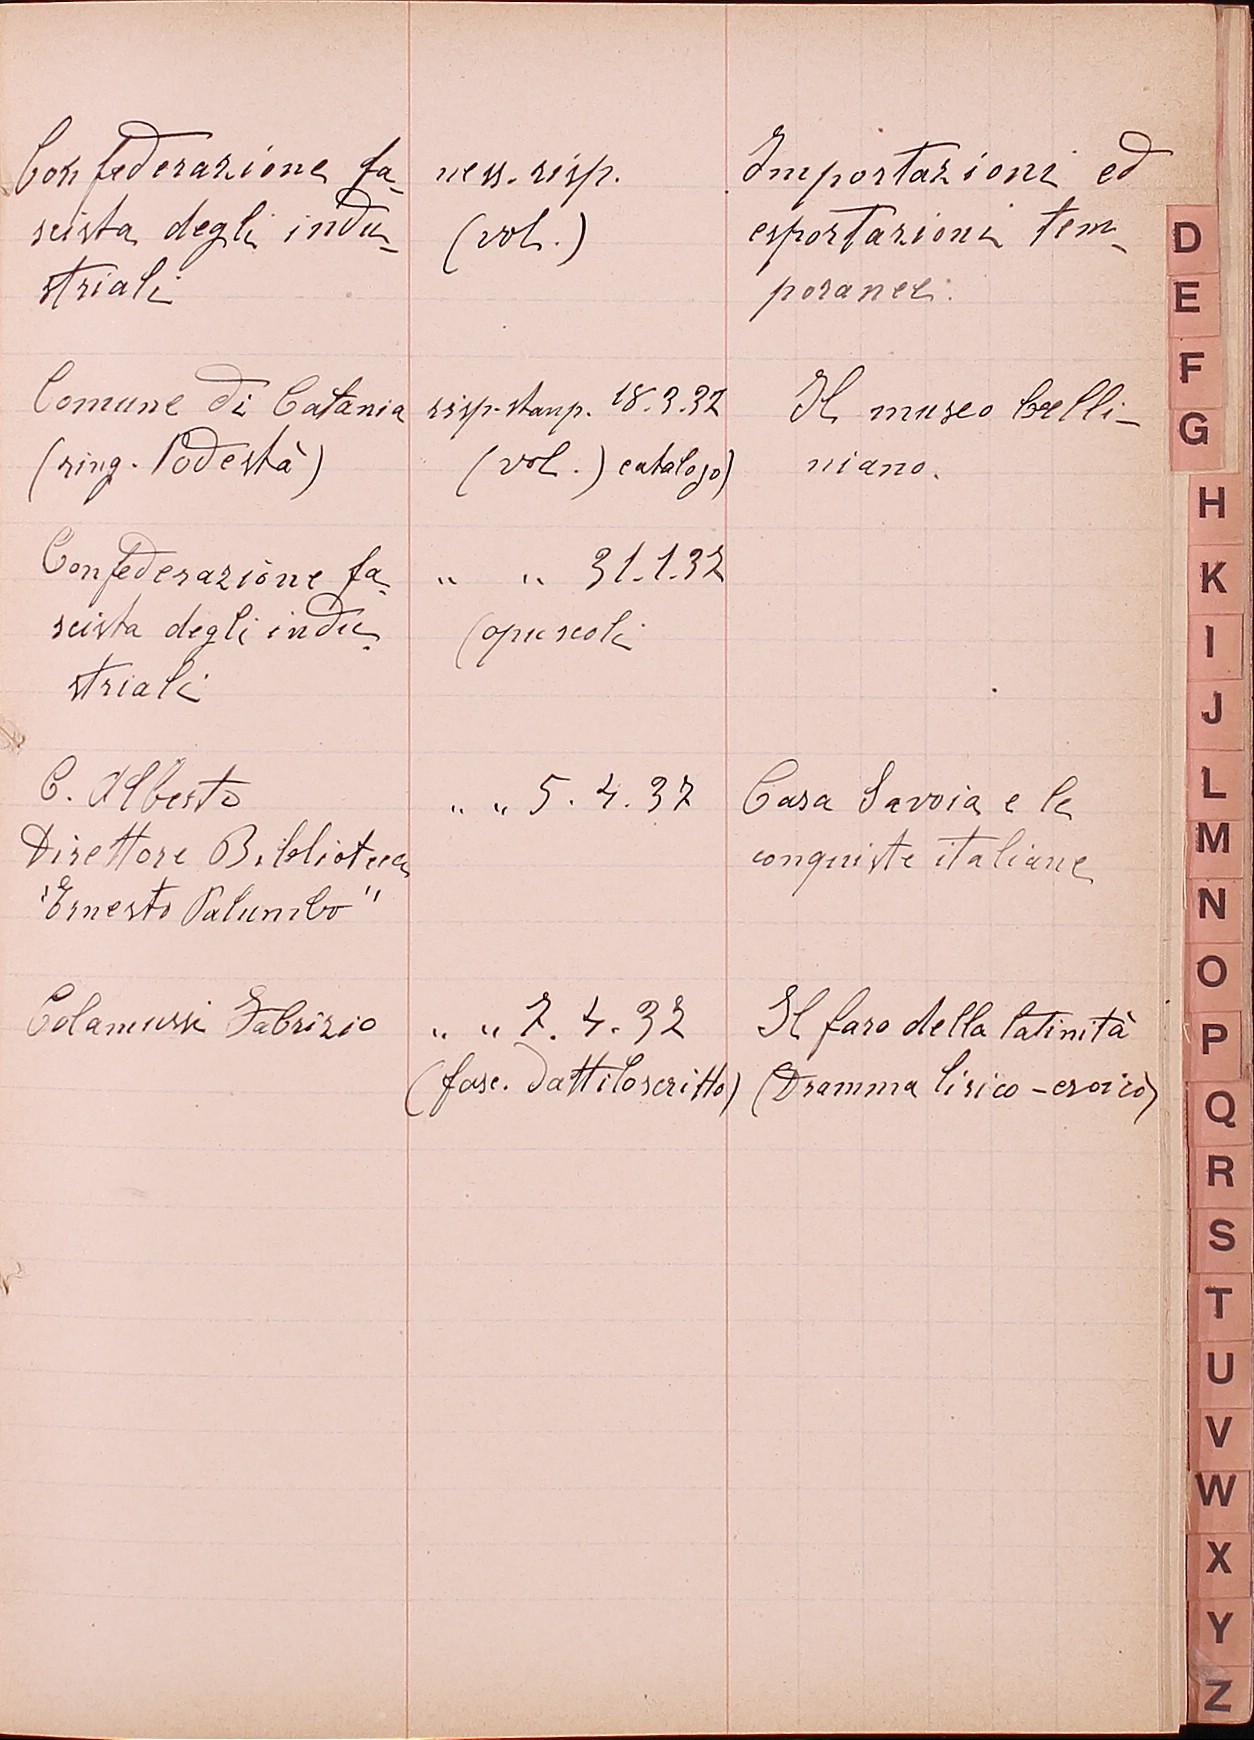 Confederazione fa-
scista degli indu-
striali
ness. risp.
(vol.)
Importazioni ed
esportazioni tem-
poranee.
Comune di Catania
(ring. Podestà)
risp. stamp. 18.3.37
(vol.) catalogo)
Il museo belli-
niano.
Confederazione fa-
scista degli indu-
striali
" " 31.1.37
(opuscoli
C. Alberto
Direttore Biblioteca
"Ernesto Palumbo"
" " 5.4.37
Casa Savoia e le
conquiste italiane
Colamussi Fabrizio
" " 7.4.37
(fasc. dattiloscritto)
Il faro della latinità
(Dramma lirico-eroico)
D
E
F
G
H
K
I
J
L
M
N
O
P
Q
R
S
T
U
V
W
X
Y
Z